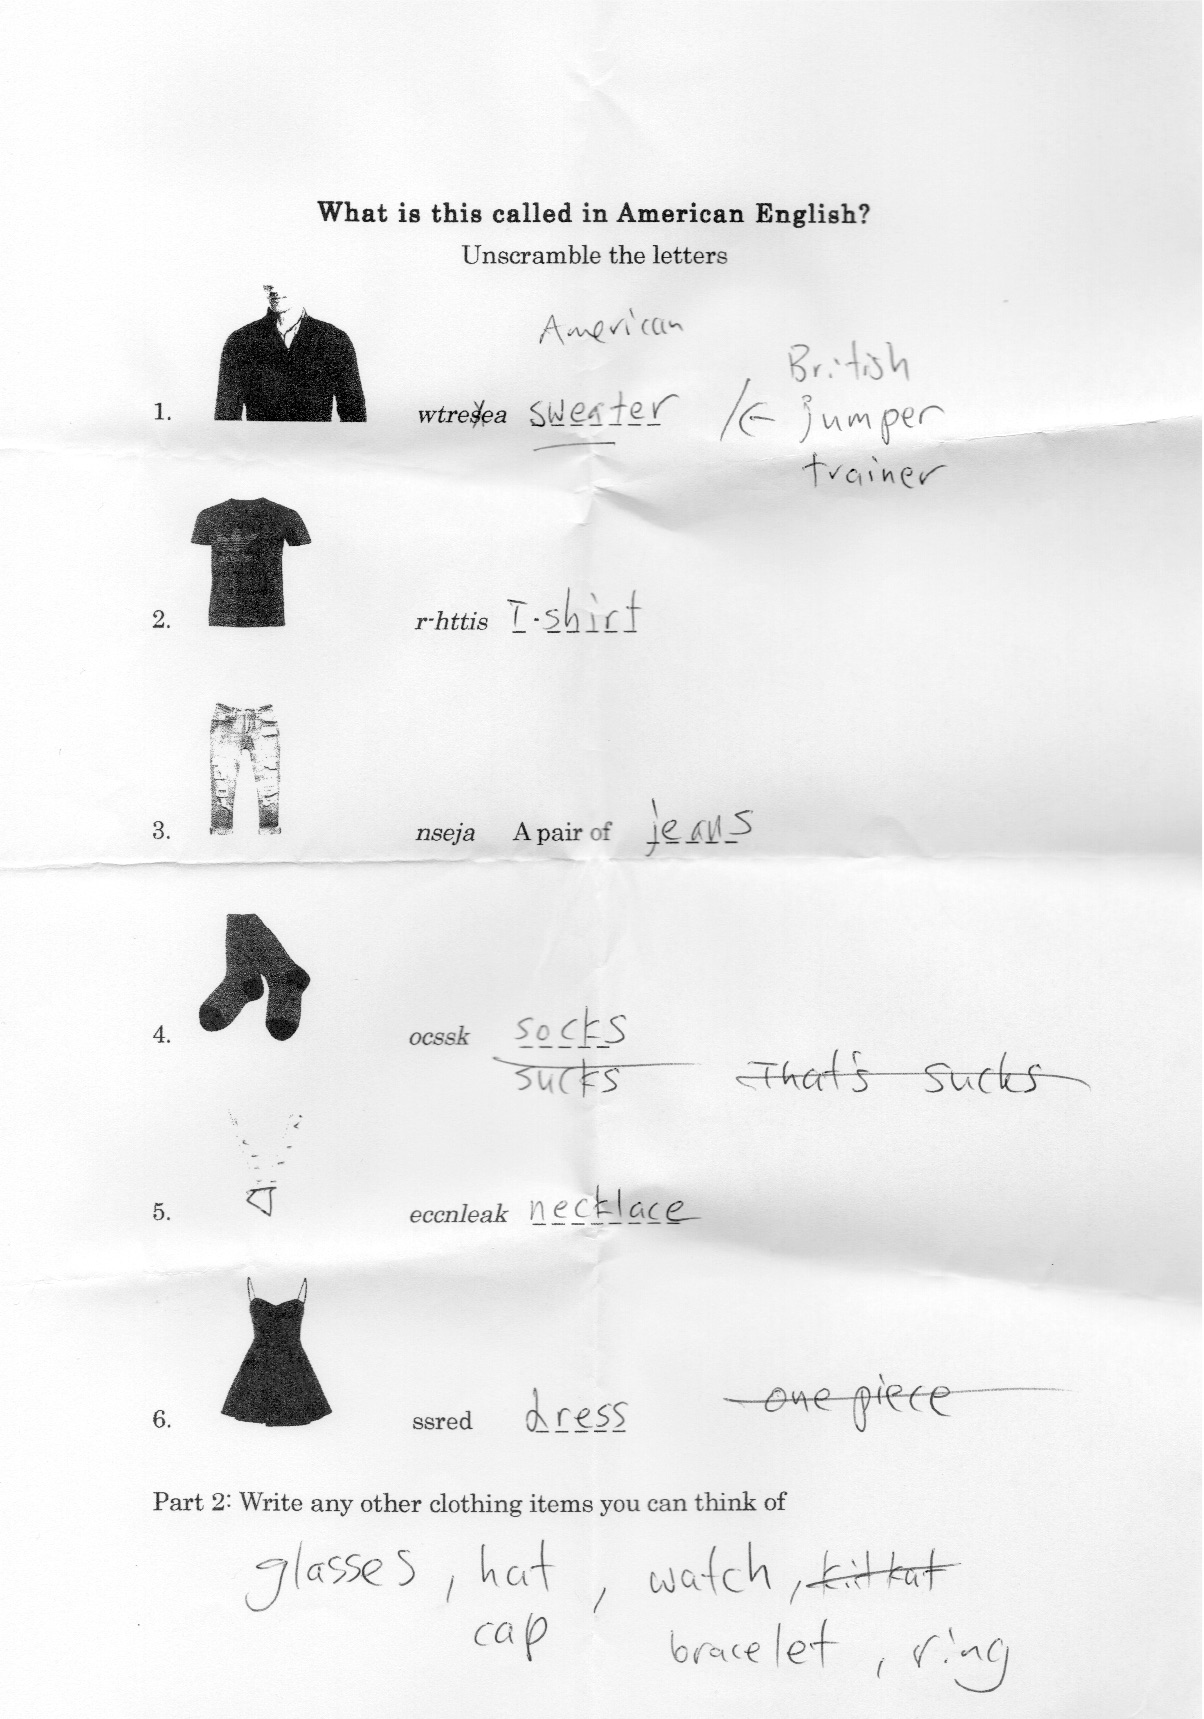 What is this called in American English?
Unscramble the letters
American
British
1. wtresea sweater /← jumper
trainer
2. r-httis T-shirt
3. nseja A pair of jeans
4. ocssk socks
sucks That's sucks
5. eccnleak necklace
6. ssred dress one piece
Part 2: Write any other clothing items you can think of
glasses, hat, watch, kitkat
cap bracelet, ring